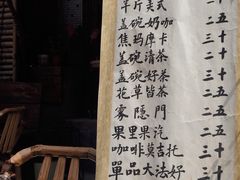 半斤美式 二十五
盖碗奶咖 三十
焦玛摩卡 三十
盖碗清茶 二十
盖碗好茶 三十
花草皆茶 二十五
雾隐門 二十五
果里果汽 二十五
咖啡莫吉托 三十
單品大法好 三十